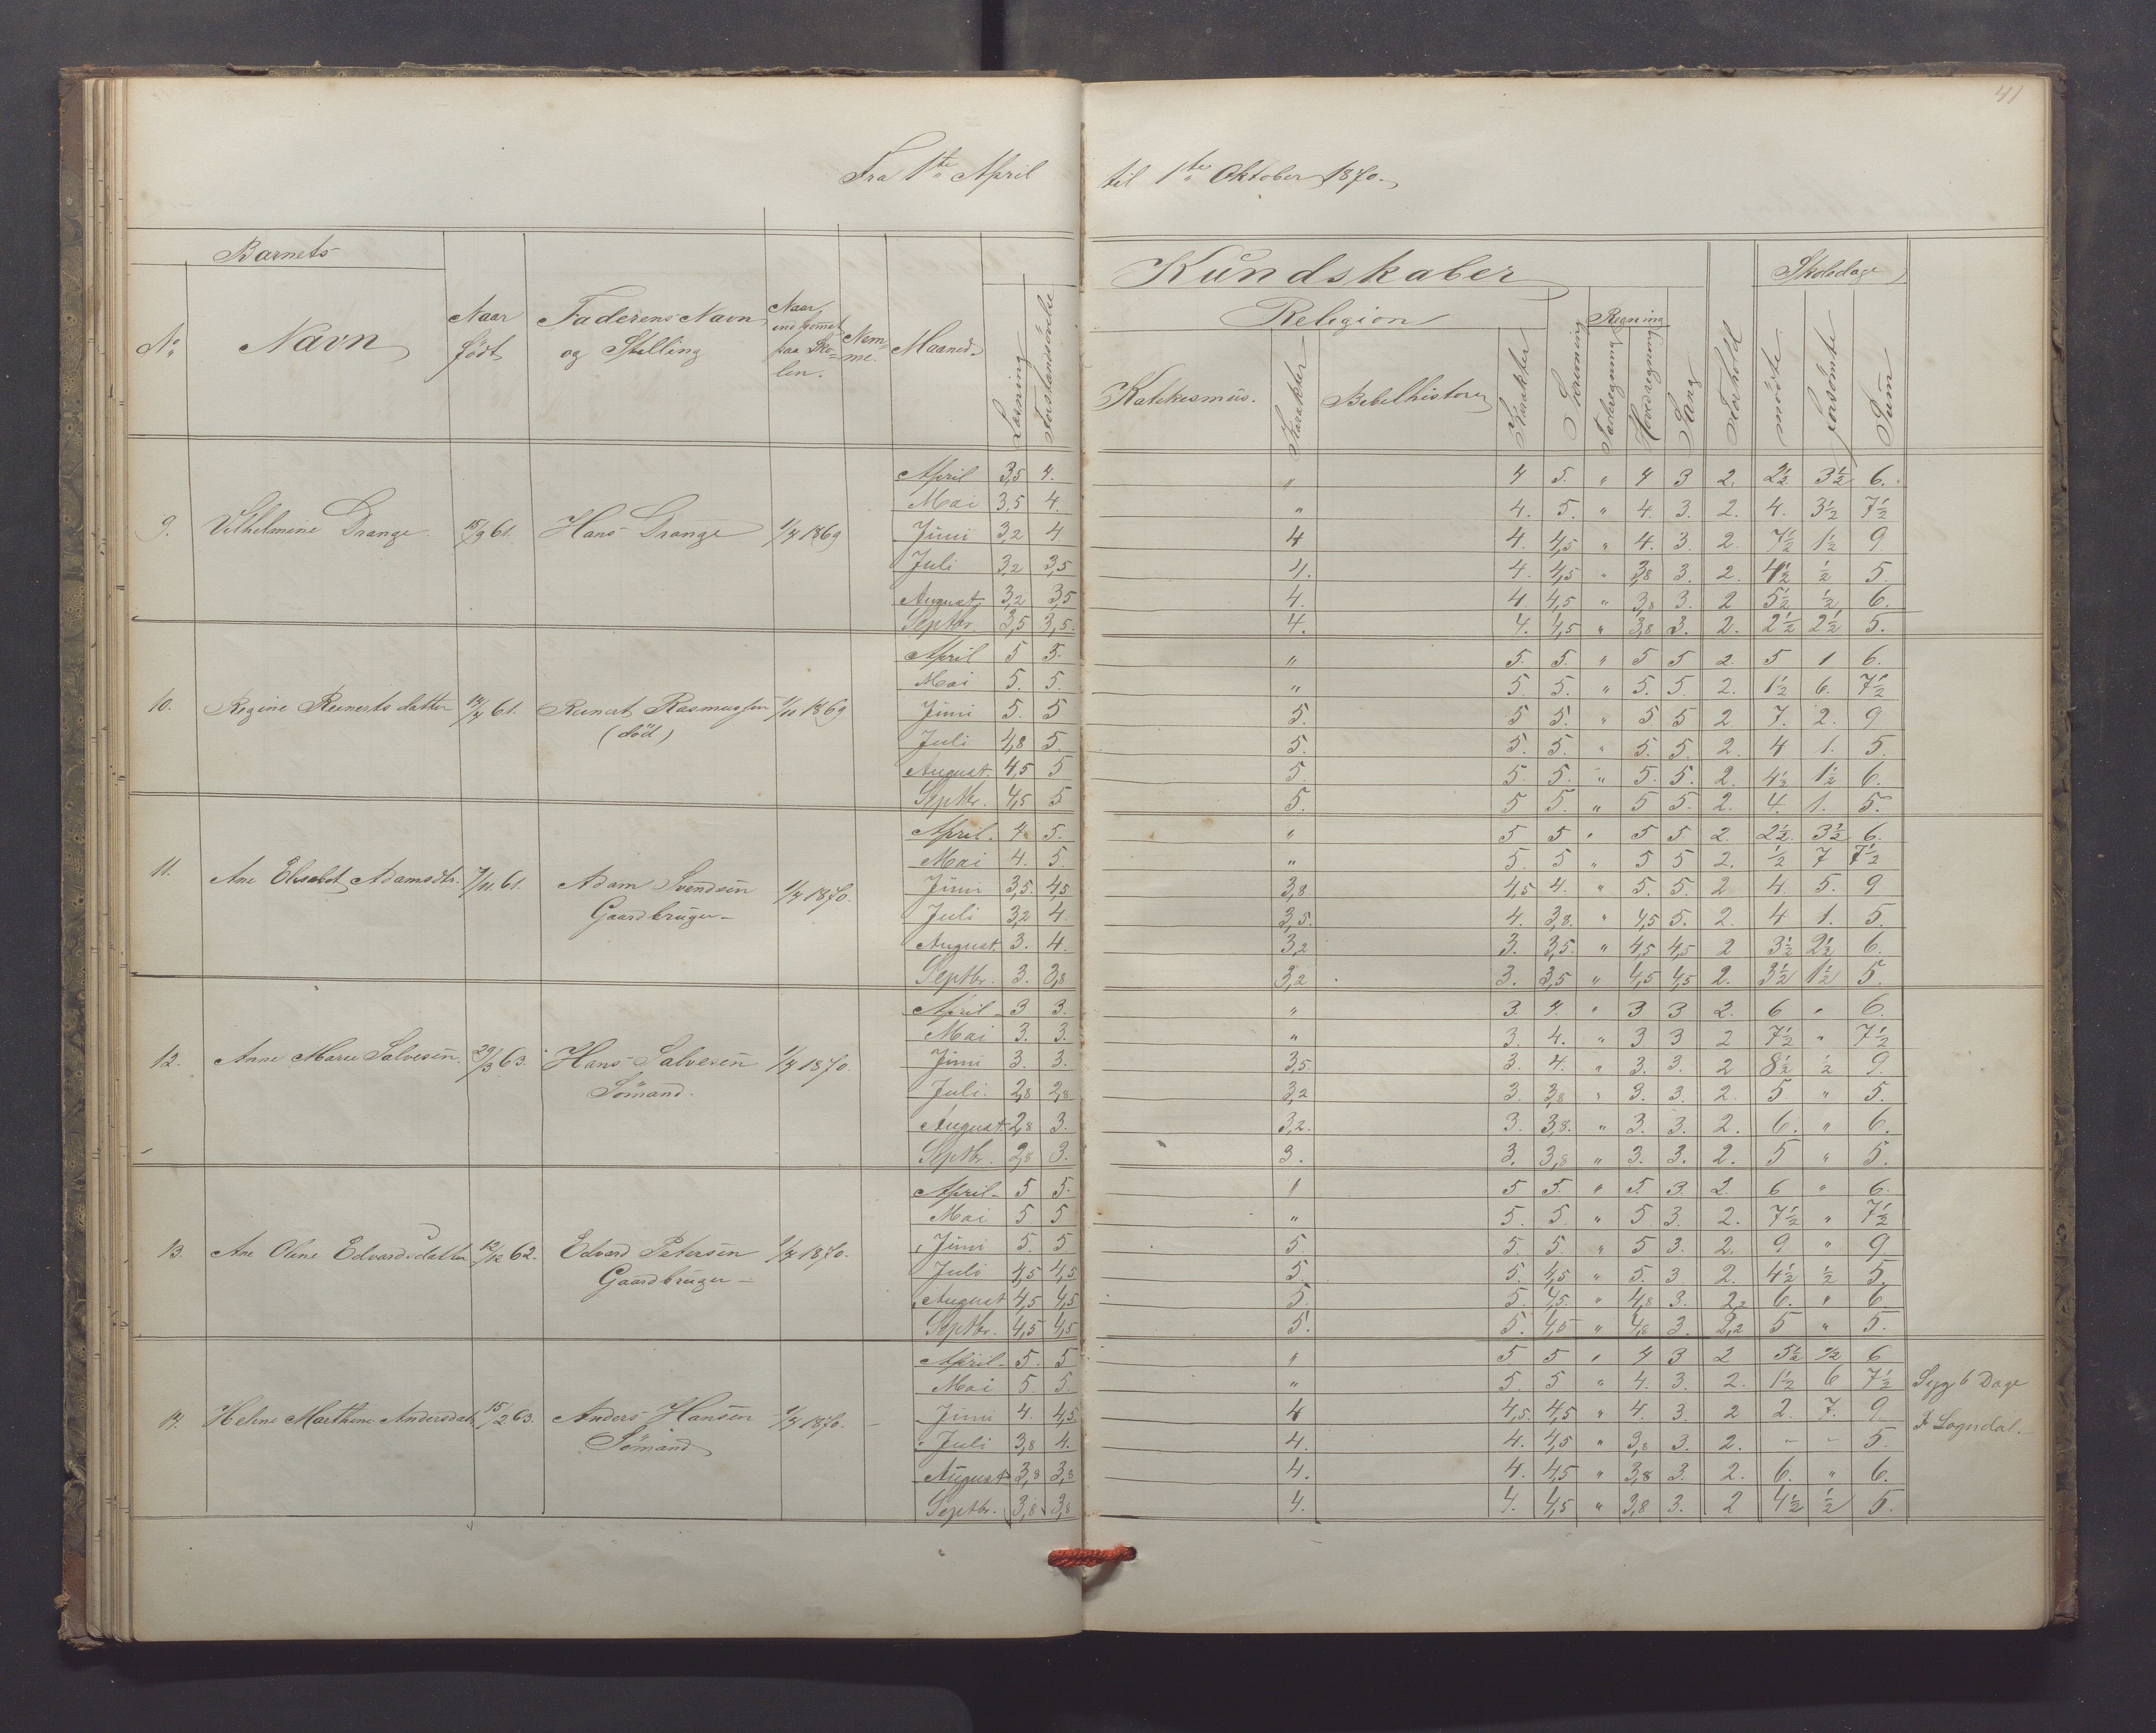 41
Fra 1ste April til 1ste Oktober 1870.
Barnets
Kundskaber
Skoledage
Religion
Regning
No Navn Naar født Faderens Navn og Stilling Naar indkommet paa Skolen. Nemme. Maaned. Læsning Forstandsøvelse Katekesmus. Karakter Bibelhistorie Karakter Skrivning Tavleregning Hovedregning Sang Forhold mødte forsømte Sum
April 3,5 4. " 4 5. " 4 3 2. 2½ 3½ 6.
Mai 3,5 4. " 4. 5. " 4. 3. 2. 4. 3½ 7½
9. Vilhelmine Drange 15/9 61. Hans Drange 1/4 1869 Juni 3,2 4 4 4. 4,5 " 4. 3. 2. 7½ 1½ 9.
Juli 3,2 3,5 4. 4. 4,5 " 3,8 3. 2. 4½ ½ 5.
August 3,2 3,5 4. 4. 4,5 " 3,8 3. 2 5½ ½ 6.
Septbr. 3,5 3,5. 4. 4. 4,5 " 3,8 3. 2. 2½ 2½ 5.
April 5 5. " 5. 5. " 5 5 2. 5 1 6.
Mai 5. 5. " 5. 5. " 5. 5. 2. 1½ 6. 7½
10. Regine Reinertsdatter 61. Reinert Rasmussen 1869 Juni 5. 5 5. 5 5. " 5 5 2 7. 2. 9
(död)
Juli 4,8 5. 5. 5. 5. " 5. 5. 2. 4 1. 5.
August. 4,5 5 5. 5. 5. " 5. 5. 2. 4½ 1½ 6.
Septbr. 4,5 5 5. 5 5. " 5 5. 2. 4. 1. 5.
April. 4. 5. " 5 5 " 5 5. 2. 2½ 3½ 6.
Mai 4. 5. " 5. 5 " 5 5 2. ½ 7 7½
11. Ane Elisabet Adamsdtr. 7/11. 61. Adam Svendsen 1/4 1870. Juni 3,5. 4,5 3,8 4,5 4. " 5. 5. 2 4. 5. 9
Gaardbruger
Juli 3,2 4. 3,5. 4. 3,8. " 4,5 5. 2. 4 1. 5.
August. 3. 4. 3,2 3. 3,5. " 4,5 4,5 2 3½ 2½ 6.
Septbr. 3. 3,8 3,2 3. 3,5 " 4,5 4,5 2. 3½ 1½ 5.
April 3 3. " 3. 4. " 3 3 2. 6 " 6.
Mai 3. 3. " 3. 4. " 3 3 2 7½ " 7½
12. Anne Marie Salvesen. 29/3 63. Hans Salvesen 1/4 1870. Juni 3. 3. 3,5 3. 4. " 3. 3. 2 8½ ½ 9.
Sömand.
Juli. 2,8 2,8 3,2 3. 3,8 " 3. 3. 2. 5. " 5.
August. 2,8 3. 3,2. 3. 3,8. " 3. 3. 2. 6. " 6.
Septbr. 2,8 3. 3. 3. 3,8 " 3. 3. 2. 5 " 5.
April 5 5. 5 5. " 5. 3. 2. 6 " 6.
Mai 5 5 " 5. 5. " 5. 3. 2. 7½ " 7½
13. Ane Oline Edvardsdatter 12/12 62. Edvard Petersen 1/4 1870. Juni 5. 5. 5. 5. 5. " 5 3. 2. 9 " 9.
Gaardbruger
Juli 4,5 4,5 5. 5. 4,5 " 5. 3 2. 4½ ½ 5.
August 4,5 4,5 5. 5. 4,5. " 4,8 3. 2,2 6. " 6
Septbr. 4,5 4,5 5. 5. 4,5 " 4,8 3. 2,2 5 " 5.
April 5. 5 " 5 5 " 4 3 2 5½ ½ 6
Mai 5. 5. " 5. 5 " 4. 3. 2. 1½ 6 7½ Syg 6 Dage
14. Helene Marthine Andersdat. 15/2 63. Anders Hansen 1/4 1870. Juni 4. 4,5. 4 4,5. 4,5 " 4. 3. 2 2. 7. 9
Sömand
I Sogndal.
Juli 3,8 4. 4. 4. 4,5 " 3,8 3. 2. - - 5.
August 3,8 3,8 4. 4. 4,5 " 3,8 3. 2. 6. " 6.
Septbr. 3,8 3,8 4. 4. 4,5 " 3,8 3. 2 4½ ½ 5.